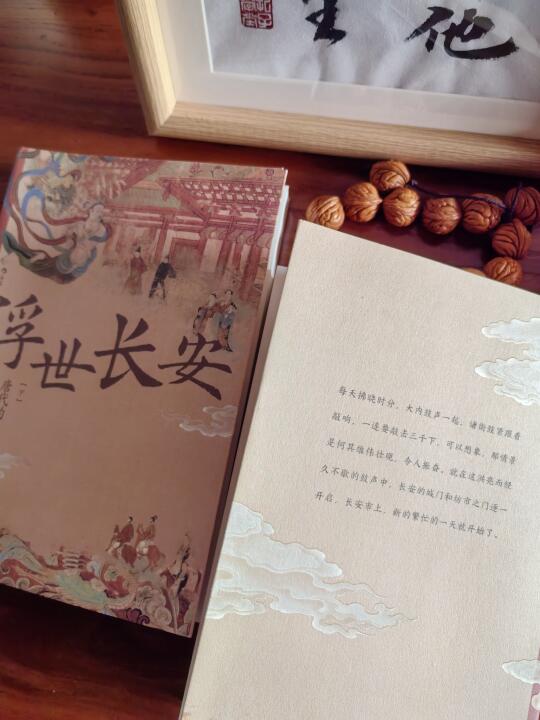 他
浮世长安
【下】
唐代的
每天拂晓时分，大内鼓声一起，诸街鼓紧跟着
敲响，一连要敲击三千下，可以想象，那情景
是何其雄伟壮观，令人振奋。就在这洪亮而经
久不歇的鼓声中，长安的城门和坊市之门逐一
开启，长安市上，新的繁忙的一天就开始了。